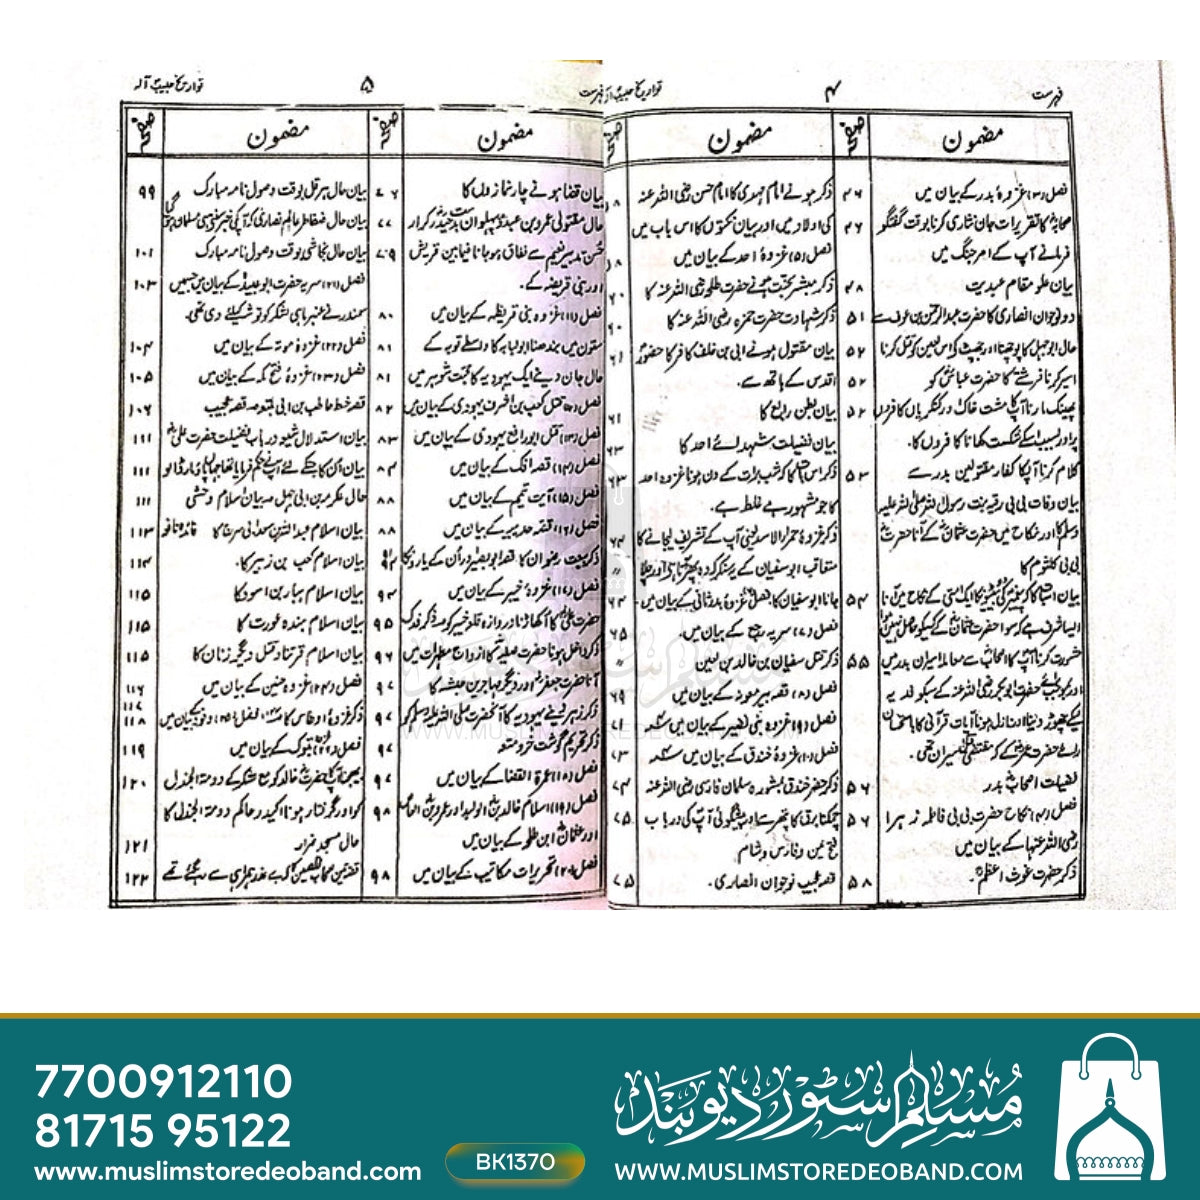 فہرست
۴
تواریخ حبیب الہ
فہرست
مضمون
صفحہ
فصل (۳) غزوۂ بدر کے بیان میں ۴۶
صحابہؓ کا تقریرات جان نثاری کرنا بوقت گفتگو ۴۶
فرمانے آپ کے امر جنگ میں
بیان علو مقام عبدیت ۴۸
دو نوجوان انصاری کا حضرت عبدالرحمٰن بن عوف سے ۵۱
حال ابوجہل کا پوچھنا اور جھپٹ کر اس لعین کو قتل کرنا ۵۲
اسیر کرنا فرشتے کا حضرت عباسؓ کو ۵۲
پھینک مارنا آپ کا مشت خاک اور کنکریاں کافروں ۵۲
پر اور بسبب اسکے شکست کھانا کافروں کا.
کلام کرنا آپ کا کفار مقتولین بدر سے ۵۳
بیان وفات بی بی رقیہ بنت رسول اللہ صلی اللہ علیہ
وسلم کا اور نکاح میں حضرت عثمانؓ کے آنا حضرت
بی بی کلثوم کا
۵۴
۵۵
فضیلت اصحاب بدر ۵۶
فصل (۴) نکاح حضرت بی بی فاطمہ زہرا ۵۶
رضی اللہ عنہا کے بیان میں
ذکر حضرت غوث اعظمؒ. ۵۸
مضمون
صفحہ
ذکر ہونے امام مہدی کا امام حسن رضی اللہ عنہ
کی اولاد میں اور بیان نکتوں کا اس باب میں
فصل (۵) غزوۂ احد کے بیان میں
ذکر مبشر بجنت ہونے حضرت طلحہ رضی اللہ عنہ کا ۶۰
ذکر شہادت حضرت حمزہ رضی اللہ عنہ کا ۶۰
بیان مقتول ہونے ابی بن خلف کافر کا حضور ۶۱
اقدس کے ہاتھ سے.
بیان بطن رابع کا ۶۱
بیان فضیلت شہدائے احد کا ۶۳
ذکر اس بات کا کہ شب برات کے دن ہونا غزوہ احد ۶۳
کا جو مشہور ہے غلط ہے.
ذکر غزوۂ حمراء الاسد یعنی آپ کے تشریف لیجانے کا ۶۴
متعاقب ابوسفیان کے
جانا ابوسفیان کا، فصل غزوہ بدر ثانی کے بیان میں ۶۴
فصل (۷) سریہ رجیع کے بیان میں. ۶۵
ذکر قتل سفیان بن خالد بن لعین
فصل (۸) قصہ بیر معونہ کے بیان میں ۶۹
فصل (۹) غزوہ بنی نضیر کے بیان میں ۷۱
فصل (۱۰) غزوۂ خندق کے بیان میں ۷۳
ذکر حفر خندق بمشورہ سلمان فارسی رضی اللہ عنہ ۷۴
چمکنا برق کا پتھر سے اور پیشگوئی آپ کی در باب ۷۵
فتح یمن و فارس و شام.
قصہ عجیب نوجوان انصاری. ۷۵
۵
تواریخ حبیب الہ
مضمون
صفحہ
بیان قضا ہونے چار نمازوں کا ۷۶
حال مقتولی عمرو بن عبدود پہلوان بدست حیدر کرار ۷۷
حسن تدبیر نعیم سے نفاق ہو جانا فیمابین قریش ۷۹
اور بنی قریظہ کے.
فصل (۱۱) غزوہ بنی قریظہ کے بیان میں ۸۰
ستون میں بندھنا ابولبابہ کا واسطے توبہ کے ۸۱
حال جان دینے ایک یہودیہ کا محبت شوہر میں ۸۱
فصل (۱۲) قتل کعب بن اشرف یہودی کے بیان میں ۸۲
فصل (۱۳) قتل ابورافع یہودی کے بیان میں ۸۳
فصل (۱۴) قصہ افک کے بیان میں ۸۴
فصل (۱۵) آیت تیمم کے بیان میں ۸۸
فصل (۱۶) قصہ حدیبیہ کے بیان میں ۸۸
ذکر بیعت رضوان کا، قصہ ابوبصیر اور اُن کے یاروں کا ۹۲
فصل (۱۷) غزوۂ خیبر کے بیان میں ۹۴
حضرت علیؓ کا اکھاڑنا دروازہ قلعہ خیبر کو مع ذکر فدک ۹۵
ذکر داخل ہونا حضرت صفیہ کا ازواج مطہرات میں ۹۶
آنا حضرت جعفرؓ اور دیگر مہاجرین حبشہ کا ۹۷
ذکر زہر دینے یہودیہ کا آنحضرت صلی اللہ علیہ وسلم کو ۹۷
ذکر تحریم گوشت خر و متعہ ۹۷
فصل (۱۸) عمرۃ القضا کے بیان میں ۹۷
فصل (۱۹) اسلام خالد بن الولید اور عمرو بن العاص ۹۸
اور عثمانؓ ابن طلحہ کے بیان میں
فصل (۲۰) تحریرات مکاتیب کے بیان میں ۹۸
مضمون
صفحہ
بیان حال ہرقل بوقت وصول نامہ مبارک ۹۹
بیان حال ضغاطر عالم نصاریٰ کا آپ کی خبر سنتے ہی مسلمان ہو گیا
بیان حال نجاشی بوقت وصول نامہ مبارک ۱۰۱
فصل (۲۱) سریہ حضرت ابوعبیدہ کے بیان میں جسمیں ۱۰۳
سمندر نے عنبر ماہی لشکر کو توشہ کیلئے دی تھی.
فصل (۲۲) غزوۂ موتہ کے بیان میں ۱۰۴
فصل (۲۳) غزوۂ فتح مکہ کے بیان میں ۱۰۵
قصہ خط حاطب بن ابی بلتعہ مع قصہ عجیب ۱۰۶
بیان استدلال شیعہ در باب فضیلت حضرت علیؓ ۱۱۱
بیان اُن کا جنکے لئے آپ نے حکم فرمایا تھا جہاں پاؤ مار ڈالو ۱۱۱
حال عکرمہ بن ابی جہل مع بیان اسلام وحشی ۱۱۱
بیان اسلام عبداللہ بن سعد بن ابی سرح کا فائدہ نافع ۱۱۳
بیان اسلام کعب بن زہیر کا. ۱۱۴
بیان اسلام ہبار بن اسود کا ۱۱۵
بیان اسلام ہندہ عورت کا ۱۱۵
بیان اسلام قرتنا و قتل دیگر زنان کا ۱۱۵
فصل (۲۴) غزوہ حنین کے بیان میں ۱۱۶
ذکر غزوہ اوطاس کا ۱۱۷ فصل (۲۵) وفود کے بیان میں ۱۱۸
فصل (۲۶) غزوہ تبوک کے بیان میں ۱۱۹
بھیجنا آپ کا حضرت خالد کو مع لشکر کے دومۃ الجندل ۱۲۰
کو اور گرفتار ہونا اکیدر حاکم دومۃ الجندل کا
حال مسجد ضرار ۱۲۱
۱۲۲
WWW.MUSLIMSTOREDEOBAND.COM
7700912110
81715 95122
www.muslimstoredeoband.com
BK1370
مسلم سٹور دیوبند
WWW.MUSLIMSTOREDEOBAND.COM